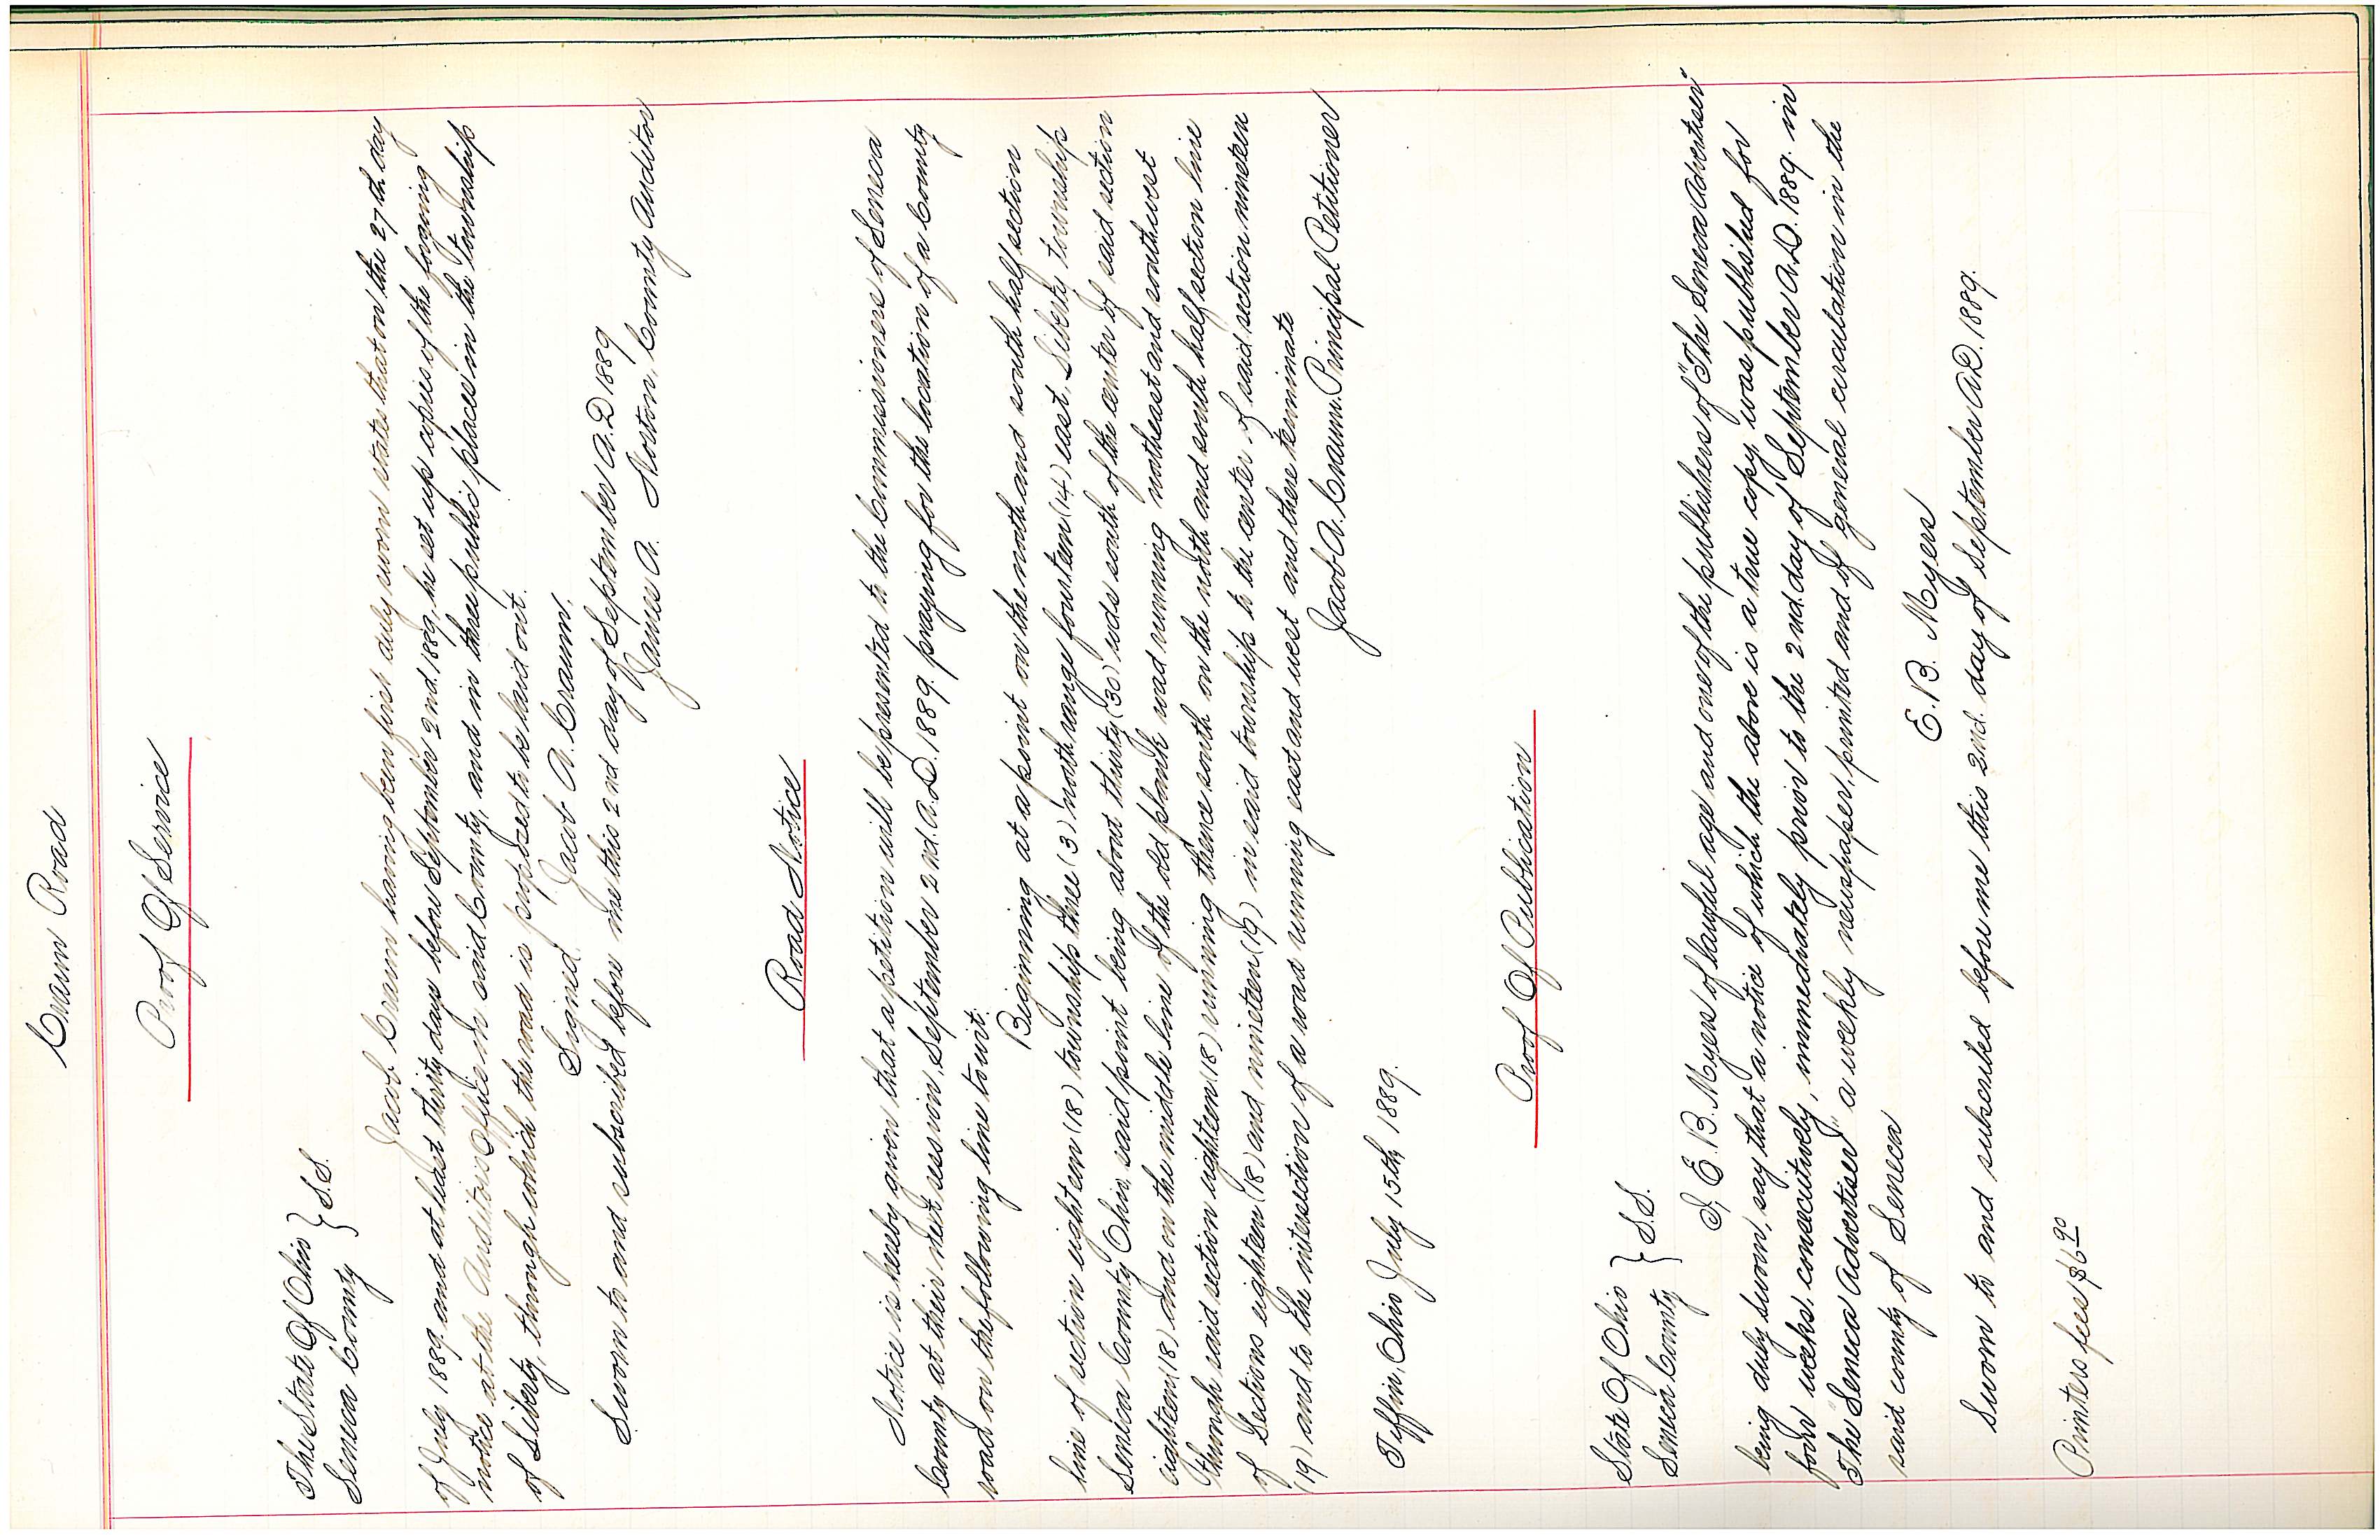 Craun Road
Proof Of Service
The State Of Ohio } S.S.
Seneca County
Jacob Craun having been first duly sworn states that on the 27th day
of July 1889. and at least thirity days before September 2nd. 1889, he set up copies of the forgoing
notice at the Auditors Office in said County, and in three public places in the township
of Liberty, through which the road is proposed to be laid out.
Signed. Jacob A. Craunn.
Sworn to and subscribed before me this 2nd day of September A.D 1889
James A. Norton, County Auditor
Road Notice
Notice is hereby given that a petition will be presented to the Commissioners of Seneca
County at their next session, September 2nd. A.D. 1889. praying for the location of a County
road on the following line to wit:
Beginning at a point on the north and south half section
line of section eighteen (18) township three (3) north range fourteen (14) east, Liberty township
Seneca County Ohio, said point being about thirity (30) rods south of the center of said section
eighteen (18) and on the middle line of the old plank road running northeast and southwest
through said section eighteen (18) running thence south on the north and south half section line
of Sections eighteen (18) and nineteen (19) in said township to the center of said section nineteen
(19) and to the intersection of a road running east and west and there terminate
Jacob A. Craunn. Principal Petitioner
Tiffin, Ohio July 15th 1889.
Proof Of Publication
State Of Ohio } S.S.
Seneca County
I, E. B. Myers of lawful age and one of the publishers of "The Seneca Advertiser"
being duly sworn, say that a notice of which the above is a true copy, was published for
four weeks, consecutively, immediately prior to the 2nd. day of September A.D. 1889. in
"The Seneca Advertiser" a weekly newspaper, printed and of general circulation in the
said county of Seneca
E. B. Myers
Sworn to and subscribed before me this 2nd. day of September A.D. 1889.
Printers fees $6.90